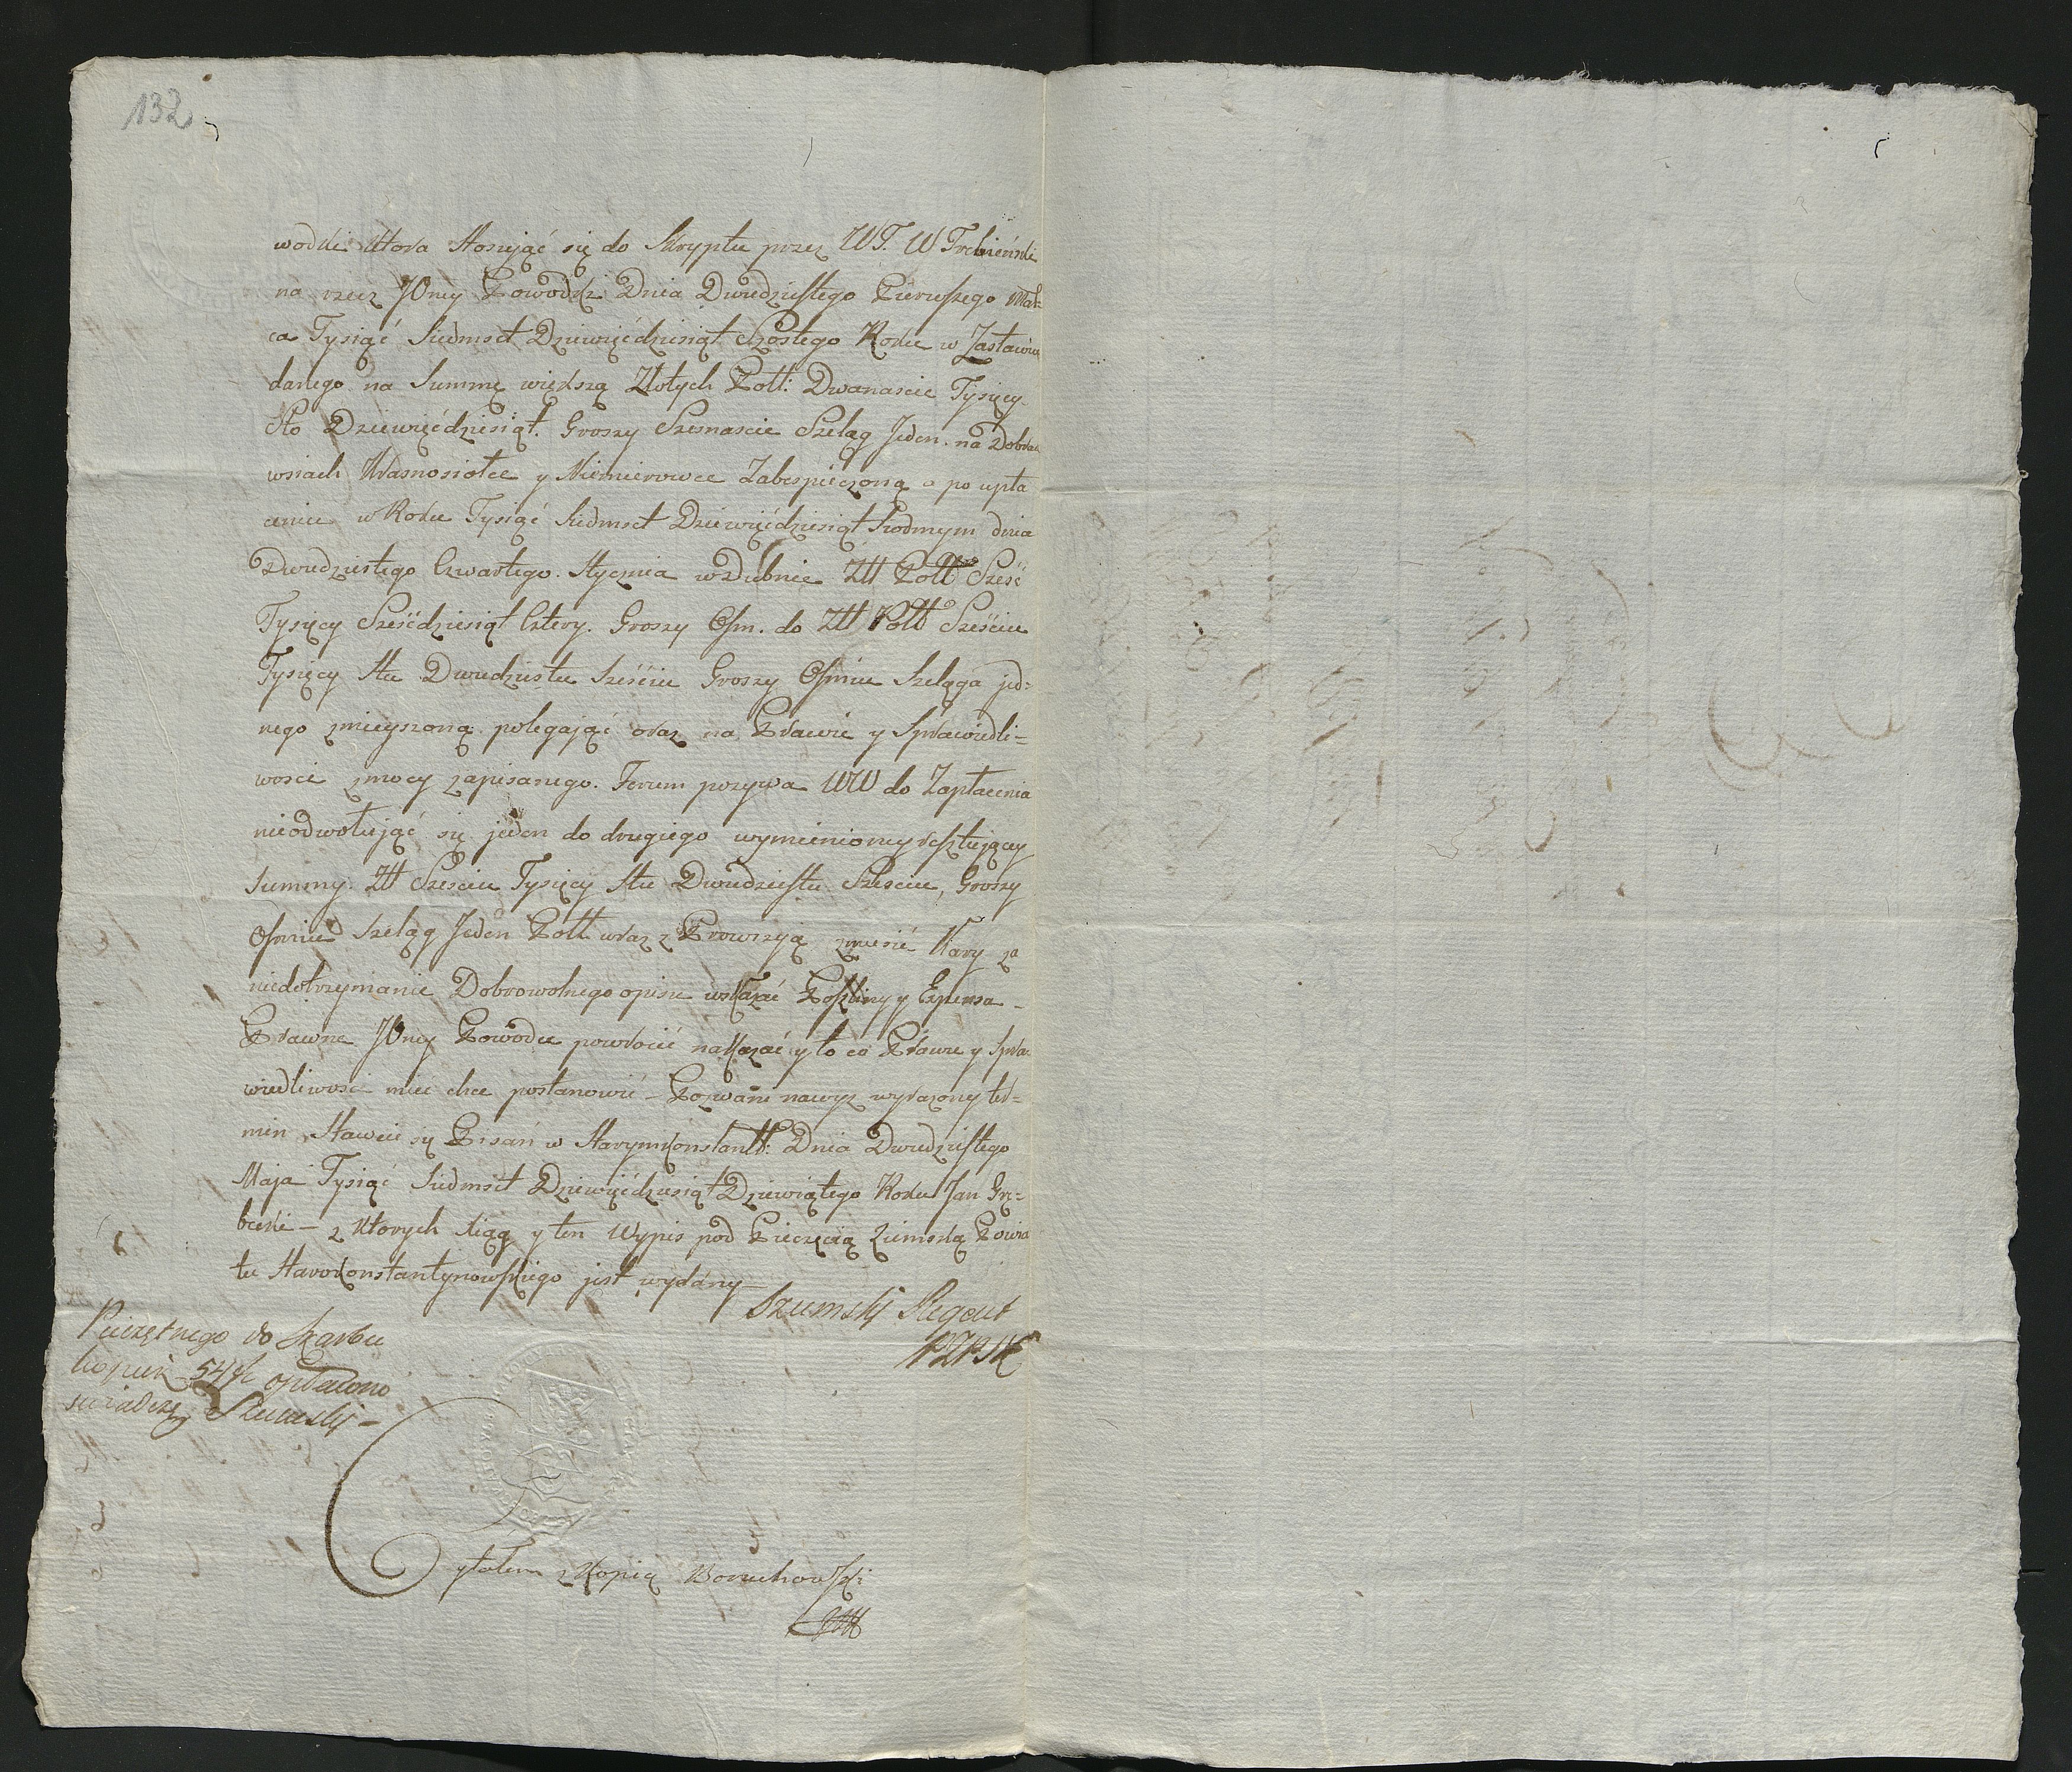 132
wodki która stosując się do Skryptu przez WJ. W Trebieński
na rzecz JOmcy Powodki Dnia Dwudziestego Pierwszego Mar=
ca Tysiąc Siedmset Dziewięćdziesiąt Szóstego Roku w Zasławiu
danego na Summę większą Złotych Poll: Dwanascie Tysięcy
Sto Dziewięćdziesiąt. Groszy Szesnascie Szeląg Jeden. na Dobrach
wsiach Krasnosiołce y Niemierowce Zabespieczoną a po upła
ceniu w Roku Tysiąc Siedmset Dziewięćdziesiąt Siodmym dnia
Dwudziestego Czwartego. Stycznia w Dubnie Zll Poll Sześć
Tysięcy Sześćdziesiąt Cztery. Groszy Osm. do Zll Poll Sześciu
Tysięcy Stu Dwudziestu Sześciu Groszy Osmiu Szeląga jed=
nego zmieyszoną polegając oraz na Prawie y Sprawiedli=
wosci z mocy zapisanego. Forum pozywa WW do Zapłacenia
nieodwołując się jeden do drugiego wymienioney resztujący
Summy. Zll Szesciu Tysięcy Stu Dwudziestu Szesciu, Groszy
Osmiu Szeląg Jeden Poll wraz z Prowizyą zmusić Kary za
niedotrzymanie Dobrowolnego opisu wskazać Poszliny y Expensa
Prawne JOmcy Powodce powrócić nakazać y to co Prawu y Spra
wiedliwosć mieć chce postanowić – Pozwani na wyz wyrażony ter=
min stawcie się Pisań w Starymkonstantt: Dnia Dwudziestego
Maja Tysiąc Siedmset Dziewięćdziesiąt Dziewiątego Roku Jan Grę=
becki – z których Xiąg y ten Wypis pod Pieczęcią Ziemską Powia
tu Starokonstantynowskiego jest wydany
Szumski Regent
PZPSK
Pieczętnego do Skarbu
kopiiek 54 opłacono
swiadczę Szumski –
Czytałem z Kopią Boruchowski